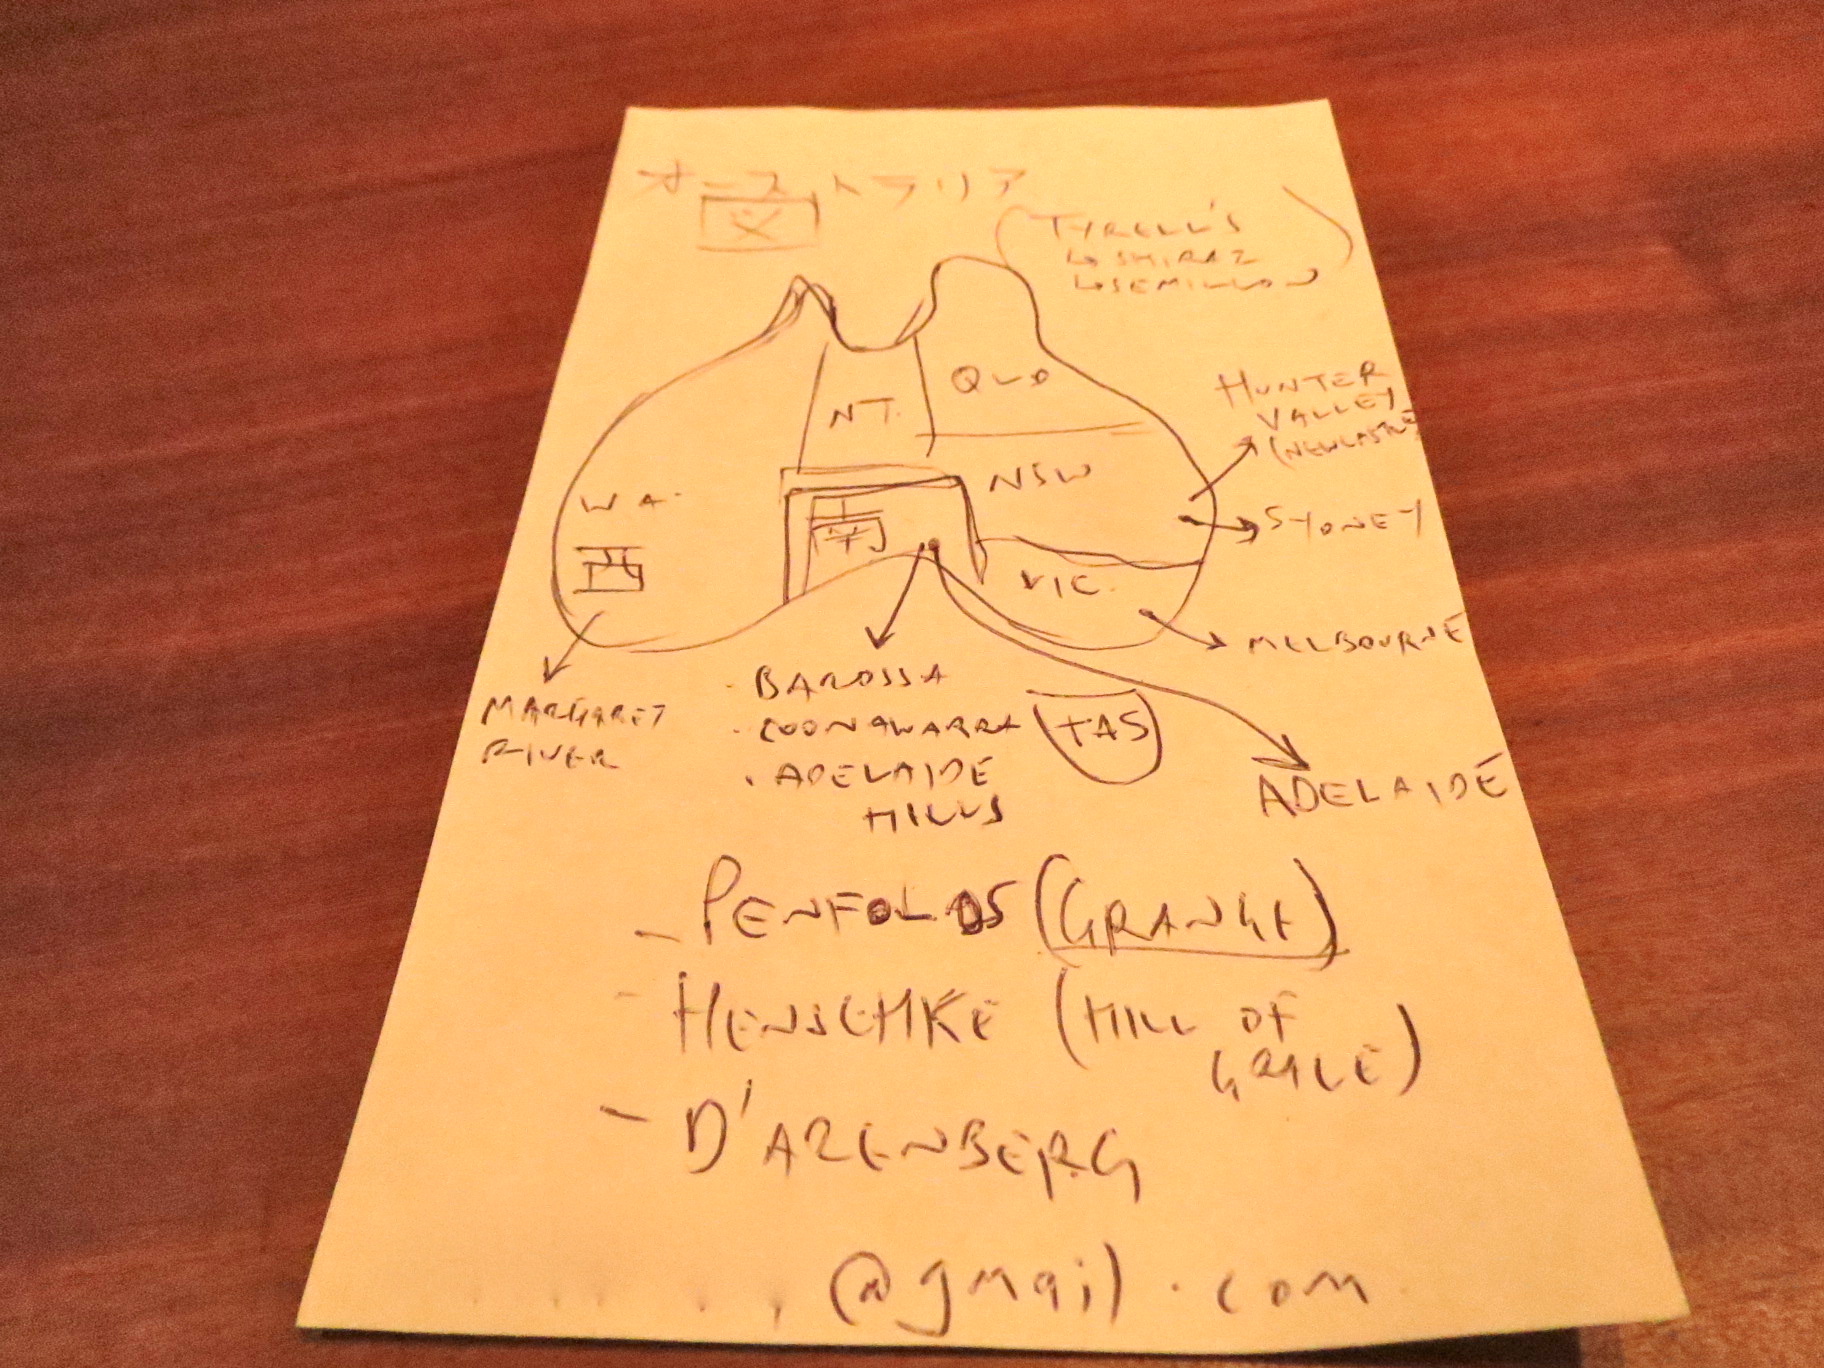 オーストラリア
図
TYRELL'S
↳ SHIRAZ
↳ SEMILLON
QLD
NT.
HUNTER
VALLEY
(NEWCASTLE
NSW
WA.
SYDNEY
南
西
VIC.
MELBOURNE
MARGARET
RIVER
· BAROSSA
· COONAWARRA
· ADELAIDE
HILLS
TAS
ADELAIDE
- PENFOLDS (GRANGE)
- HENSCHKE (HILL OF
GRACE)
- D'ARENBERG
@gmail.com